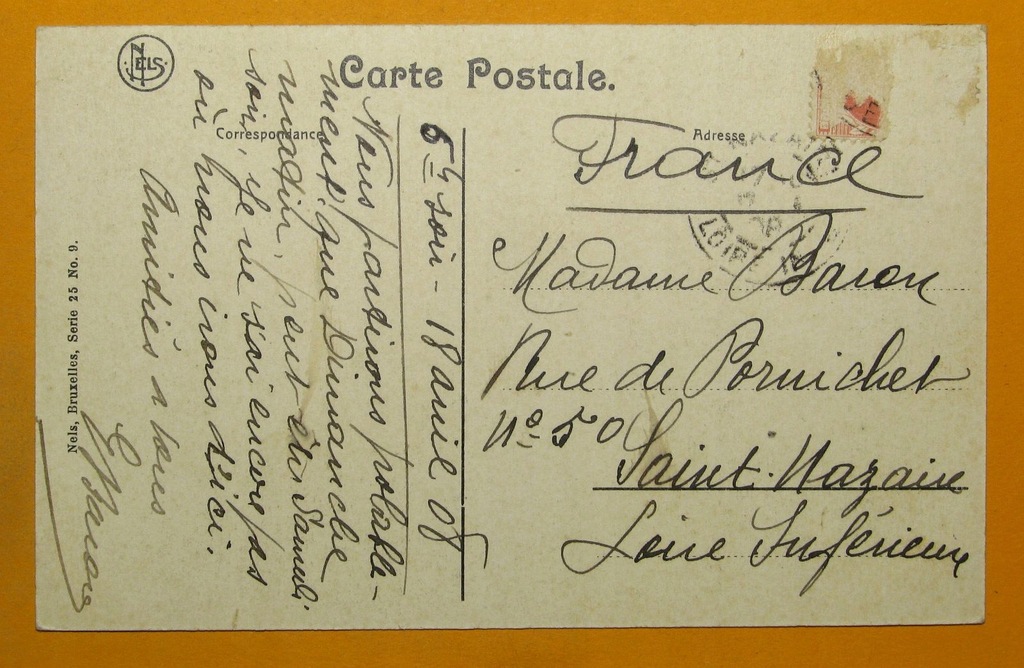 NELS
Carte Postale.
Correspondance
Adresse
France
Madame Baron
Rue de Pornichet
Nº 50
Saint-Nazaire
Loire Inférieure
soir - 18 avril 08
Nous partirons probable-
ment que Dimanche
matin, peut être Samedi
soir, je ne sai encore pas
où nous irons d'ici.
Amitiés à tous
Baron
Nels, Bruxelles, Serie 25 No. 9.
LOIRE